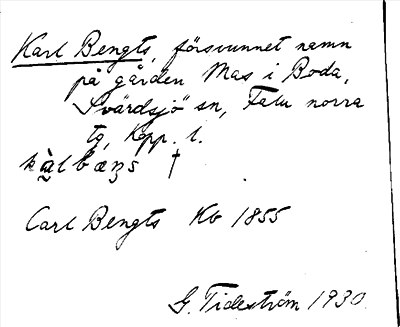 Karl Bengts, försvunnet namn
på gården Mas i Boda,
Svärdsjö sn, Falu norra
tg, Kopp. l.
kàlbæŋs †
Carl Bengts Kb 1855
G. Tideström 1930.